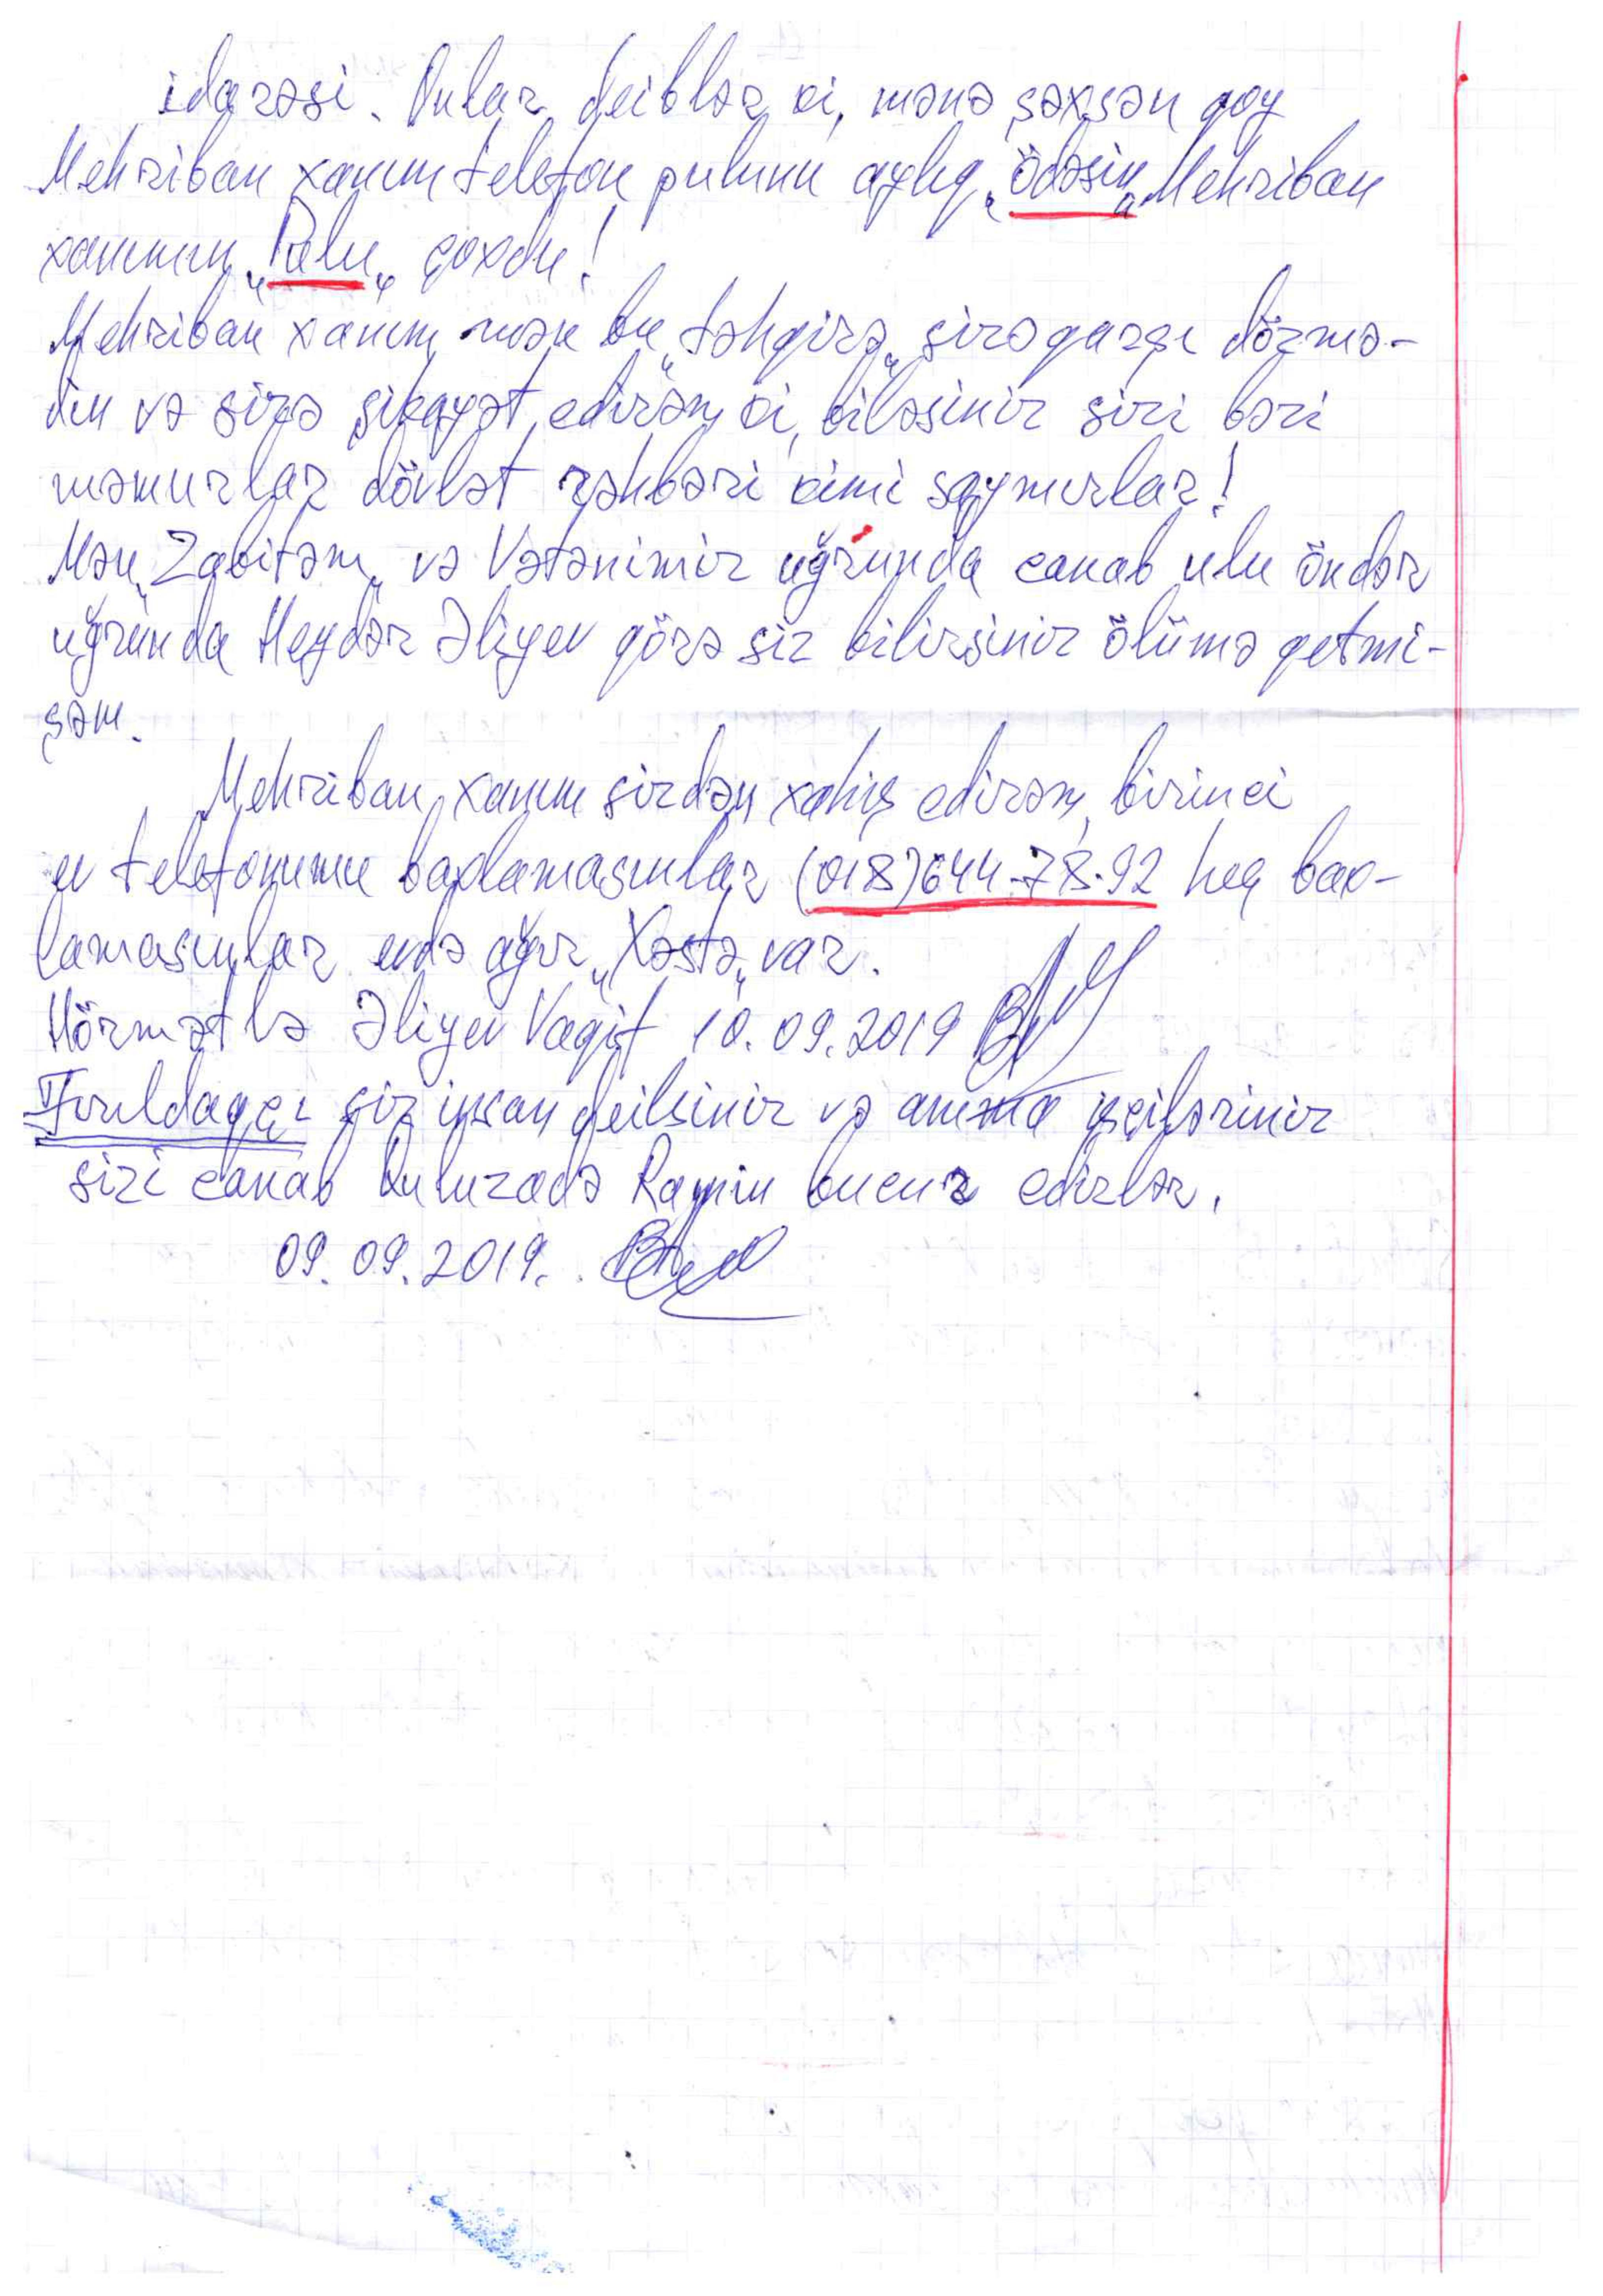 idarəsi. Onlar deiblər ki, mənə şəxsən qoy
Mehriban xanım telefon pulunu aylıq „ödəsin„ Mehriban
xanımın „Pulu„ çoxdu!
Mehriban xanım mən bu „təhqirə„ sizə qarşı dözmə-
dim və sizə şikayət edirəm ki, biləsiniz sizi bəzi
məmurlar dövlət rəhbəri kimi saymırlar!
Mən „Zabitəm„ və Vətənimiz uğrunda canab ulu öndər
uğrunda Heydər Əliyev görə siz bilirsiniz ölümə getmi-
şəm.
Mehriban xanım sizdən xahiş edirəm, birinci
ev telefonumu bağlamasınlar (018)644-78-92 heç bağ-
lamasınlar evdə ağır „Xəstə„ var.
Hörmətlə Əliyev Vaqif 10.09.2019
siz insan deilsiniz və amma işçiləriniz
sizi canab Quluzadə Ramin bucur edirlər.
09.09.2019.